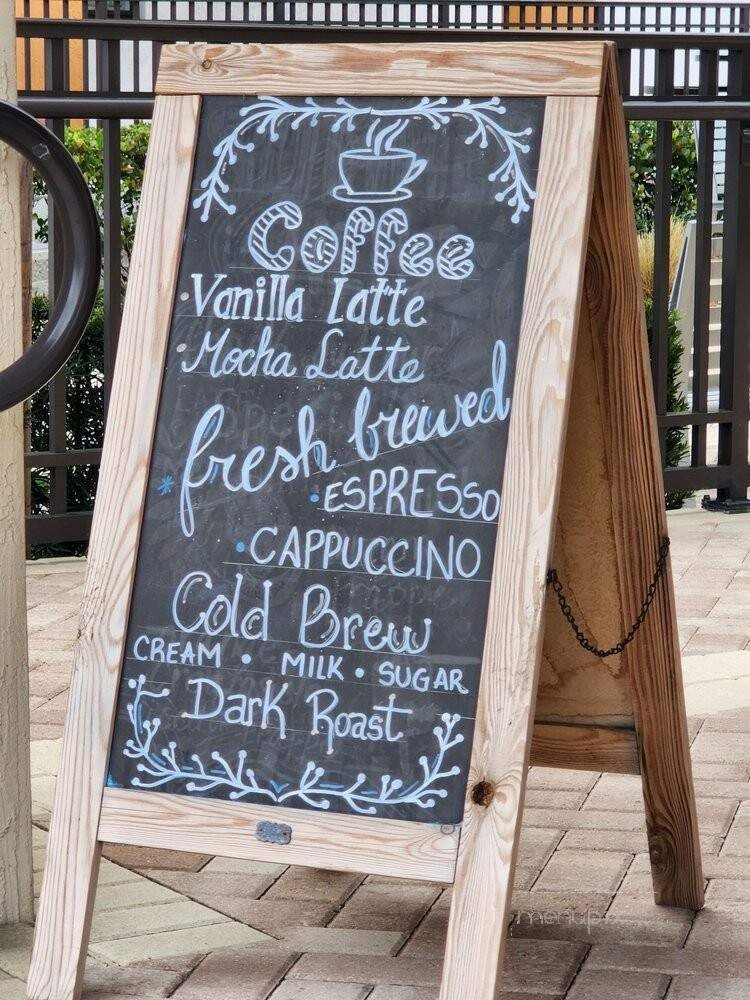 Coffee
Vanilla Latte
Mocha Latte
fresh brewed
* • ESPRESSO
• CAPPUCCINO
Cold Brew
CREAM • MILK • SUGAR
Dark Roast
menupix